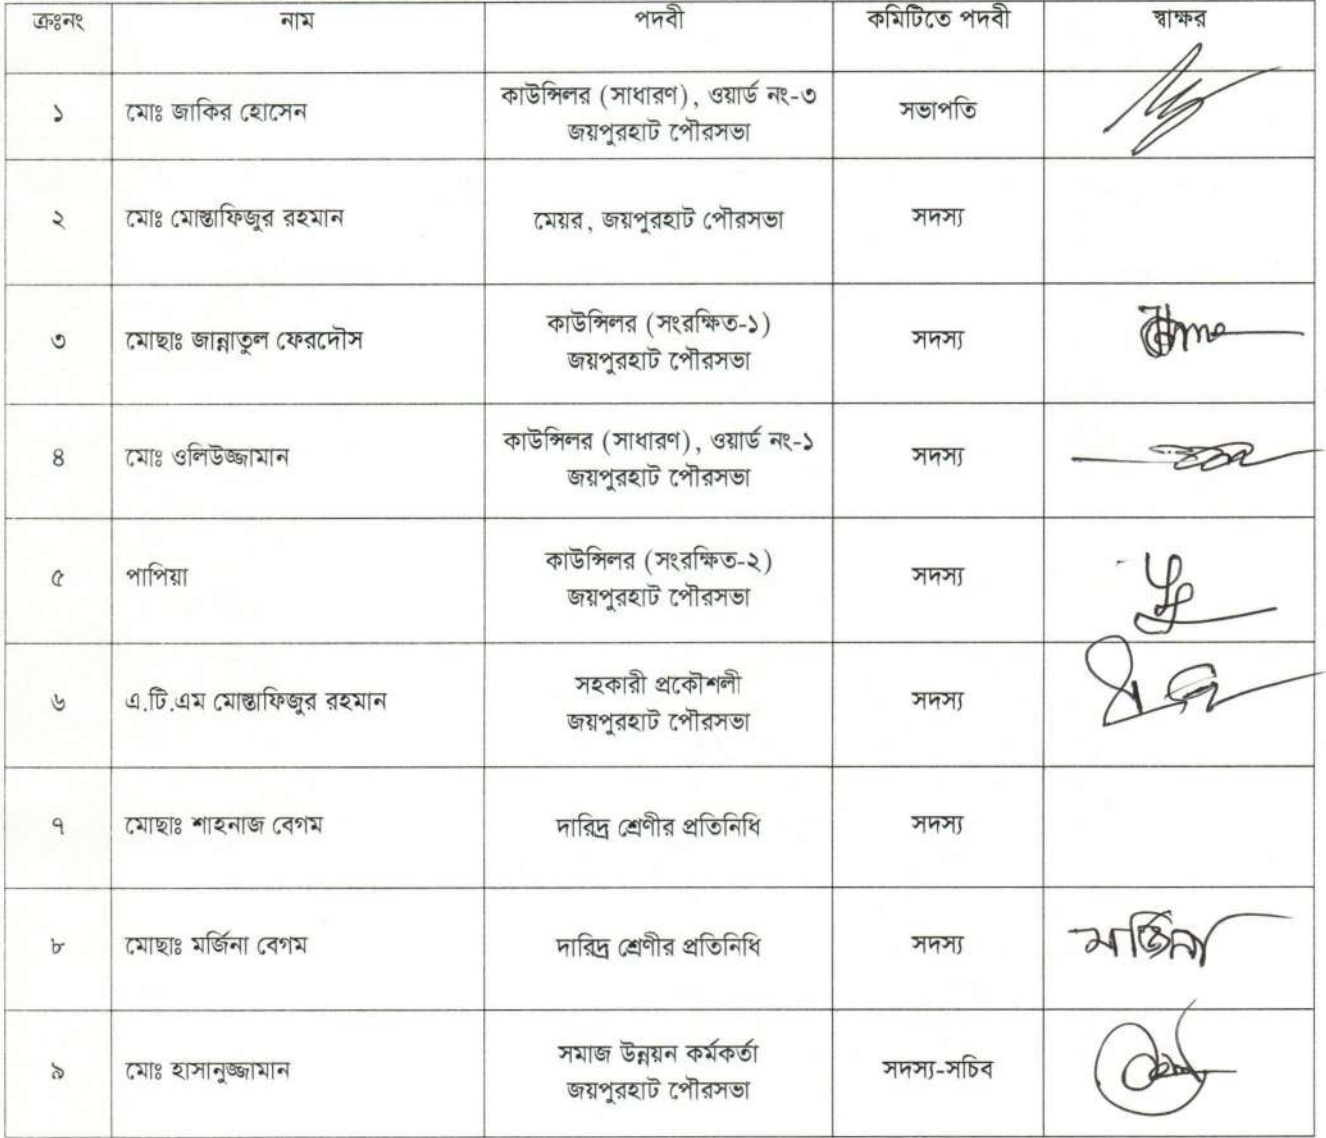 ক্রঃনং নাম পদবী কমিটিতে পদবী স্বাক্ষর
১ মোঃ জাকির হোসেন কাউন্সিলর (সাধারণ), ওয়ার্ড নং-৩ সভাপতি
জয়পুরহাট পৌরসভা
২ মোঃ মোস্তাফিজুর রহমান মেয়র, জয়পুরহাট পৌরসভা সদস্য
৩ মোছাঃ জান্নাতুল ফেরদৌস কাউন্সিলর (সংরক্ষিত-১) সদস্য
জয়পুরহাট পৌরসভা
৪ মোঃ ওলিউজ্জামান কাউন্সিলর (সাধারণ), ওয়ার্ড নং-১ সদস্য
জয়পুরহাট পৌরসভা
৫ পাপিয়া কাউন্সিলর (সংরক্ষিত-২) সদস্য
জয়পুরহাট পৌরসভা
৬ এ.টি.এম মোস্তাফিজুর রহমান সহকারী প্রকৌশলী সদস্য
জয়পুরহাট পৌরসভা
৭ মোছাঃ শাহনাজ বেগম দারিদ্র শ্রেণীর প্রতিনিধি সদস্য
৮ মোছাঃ মর্জিনা বেগম দারিদ্র শ্রেণীর প্রতিনিধি সদস্য মর্জিনা
৯ মোঃ হাসানুজ্জামান সমাজ উন্নয়ন কর্মকর্তা সদস্য-সচিব
জয়পুরহাট পৌরসভা